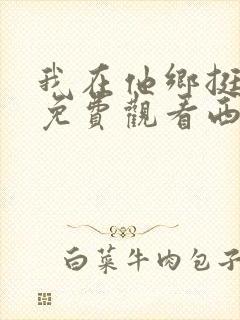 我在他鄉挺
免費觀看西
白菜牛肉包子